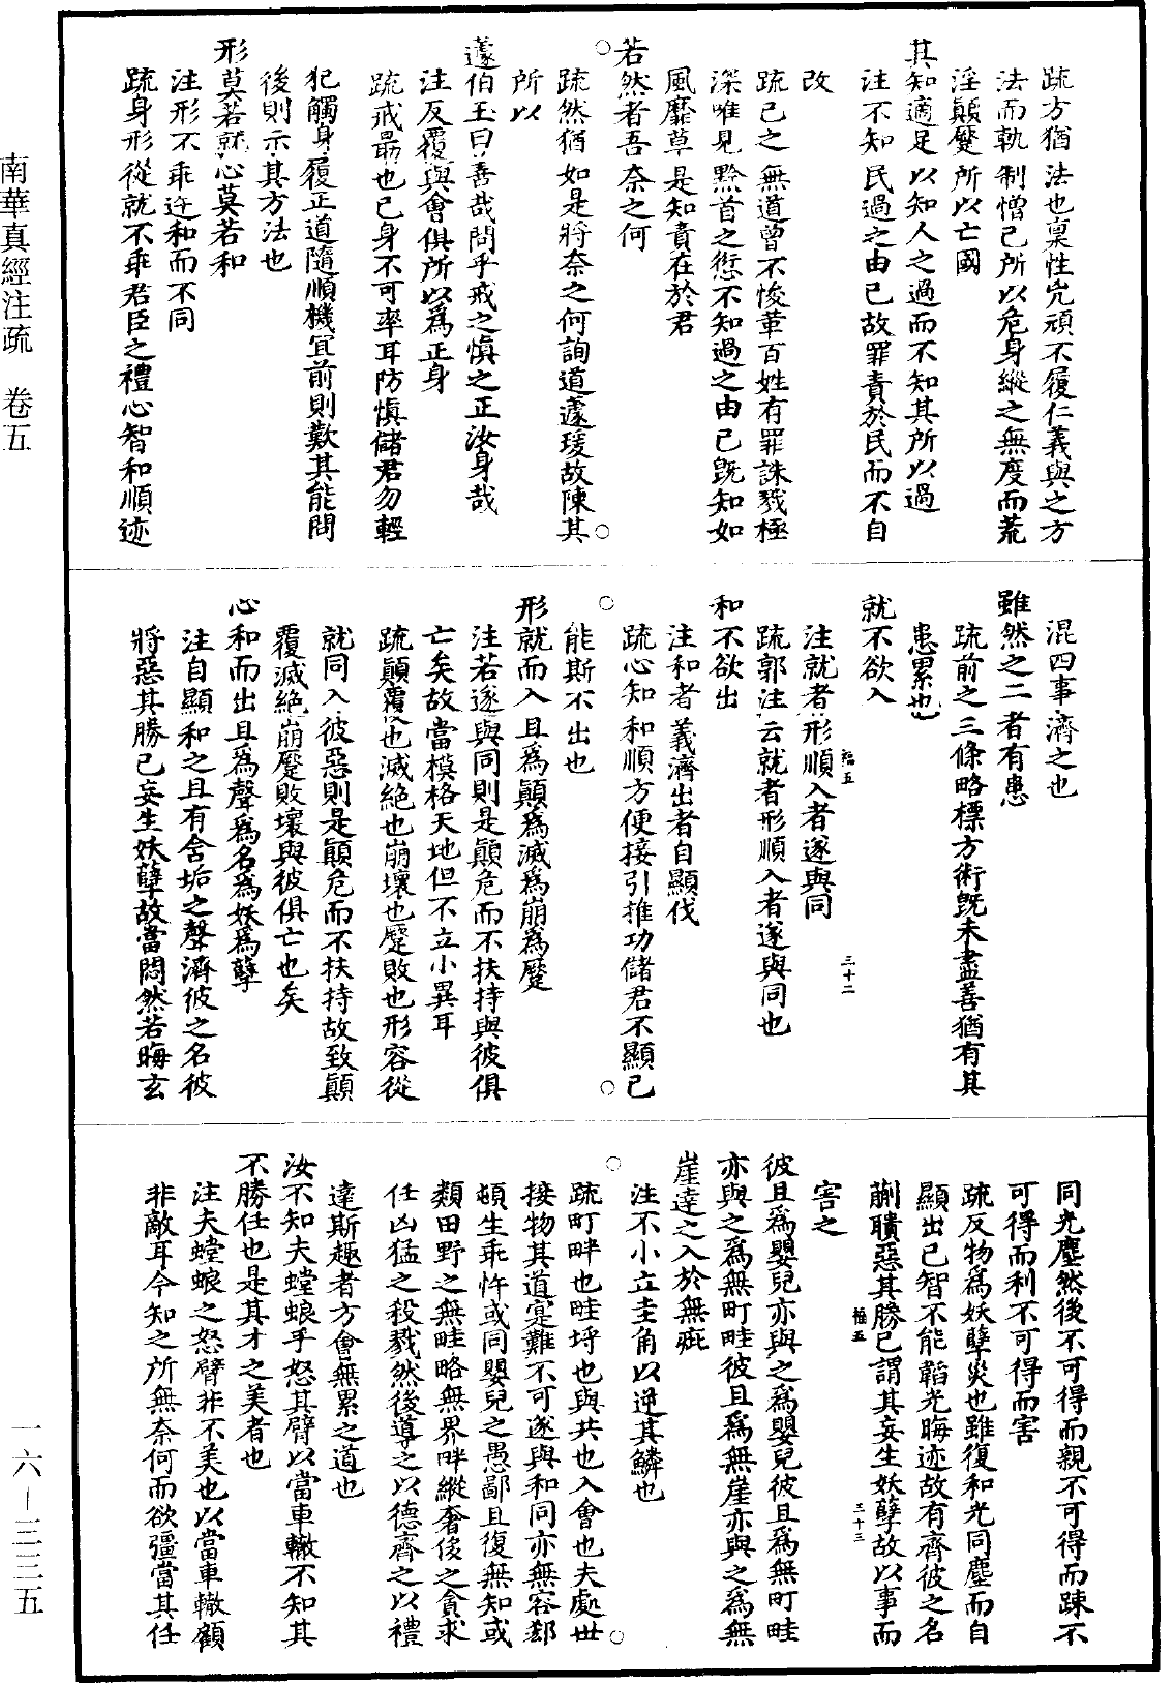 疏方猶法也稟性兇頑不履仁義與之方
法而軌制憎己所以危身縱之無度而荒
淫顛蹷所以亡國
其知適足以知人之過而不知其所以過
注不知民過之由已故罪責於民而不自
改
疏已之無道曾不悛革百姓有罪誅戮極
深唯見黔首之愆不知過之由已旣知如
風靡草是知責在於君
若然者吾奈之何
疏然猶如是將奈之何詢道蘧瑗故陳其
所以
蘧伯玉曰善哉問乎戒之慎之正汝身哉
注反覆與會俱所以爲正身
疏戒勗也已身不可率耳防慎儲君勿輕
犯觸身履正道隨順機宜前則歎其能問
後則示其方法也
形莫若就心莫若和
注形不乖迕和而不同
疏身形從就不乖君臣之禮心智和順迹
混四事濟之也
雖然之二者有患
疏前之三條略標方術旣未盡善猶有其
患累也
就不欲入
注就者形順入者遂與同
疏郭注云就者形順入者遂與同也
和不欲出
注和者義濟出者自顯伐
疏心知和順方便接引推功儲君不顯已
能斯不出也
形就而入且爲顛爲滅爲崩爲蹷
注若遂與同則是顛危而不扶持與彼俱
亡矣故當模格天地但不立小異耳
疏顛覆也滅絕也崩壞也蹷敗也形容從
就同入彼惡則是顛危而不扶持故致顛
覆滅絕崩蹷敗壞與彼俱亡也矣
心和而出且爲聲爲名爲妖爲孽
注自顯和之且有含垢之聲濟彼之名彼
將惡其勝已妄生妖孽故當悶然若晦玄
同光塵然後不可得而親不可得而踈不
可得而利不可得而害
疏反物爲妖孽災也雖復和光同塵而自
顯出已智不能韜光晦迹故有齊彼之名
蒯聵惡其勝已謂其妄生妖孽故以事而
害之
彼且爲嬰兒亦與之爲嬰兒彼且爲無町畦
亦與之爲無町畦彼且爲無崖亦與之爲無
崖達之入於無疵
注不小立圭角以逆其鱗也
疏町畔也畦埒也與共也入會也夫處世
接物其道寔難不可遂與和同亦無容郄
頓生乖忤或同嬰兒之愚鄙且復無知或
類田野之無畦略無界畔縱奢侈之貪求
任凶猛之殺戮然後導之以德齊之以禮
達斯趣者方會無累之道也
汝不知夫螳蜋乎怒其臂以當車轍不知其
不勝任也是其才之美者也
注夫螳蜋之怒臂非不美也以當車轍顧
非敵耳今知之所無奈何而欲彊當其任
三十二
三十三
南華真經注疏 卷五
一六—三三五